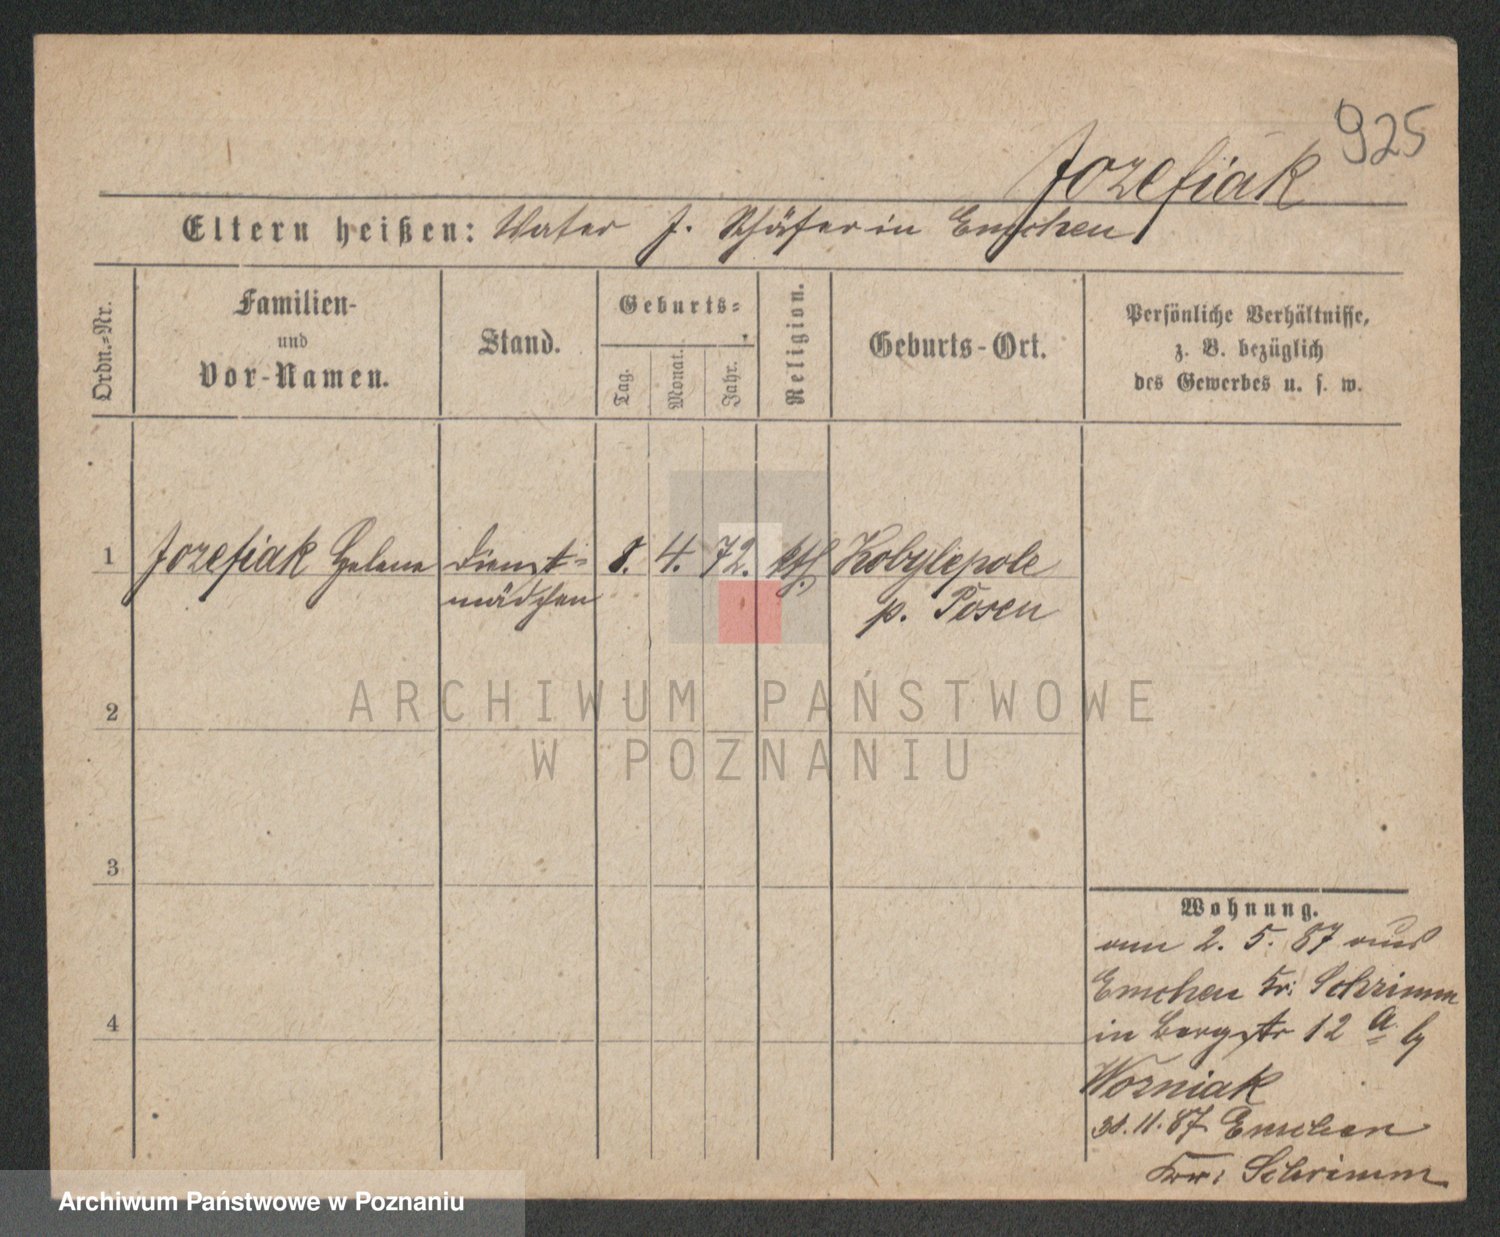 925
Jozefiak
Eltern heißen: Vater J. Schäfer in Emchen
Ordn.=Nr.
Familien-
und
Vor-Namen.
Stand.
Geburts=
Tag.
Monat.
Jahr.
Religion.
Geburts-Ort.
Persönliche Verhältnisse,
z. B. bezüglich
des Gewerbes u. s. w.
1 Jozefiak Helene Dienst= 8. 4. 72. kth. Kobylepole
mädchen p. Posen
2
3
4
Wohnung.
am 2. 5. 87 aus
Emchen Kr. Schrimm
in Bergstr 12 a b
Wozniak
30.11.87 Emchen
Kr. Schrimm
ARCHIWUM PAŃSTWOWE
W POZNANIU
Archiwum Państwowe w Poznaniu